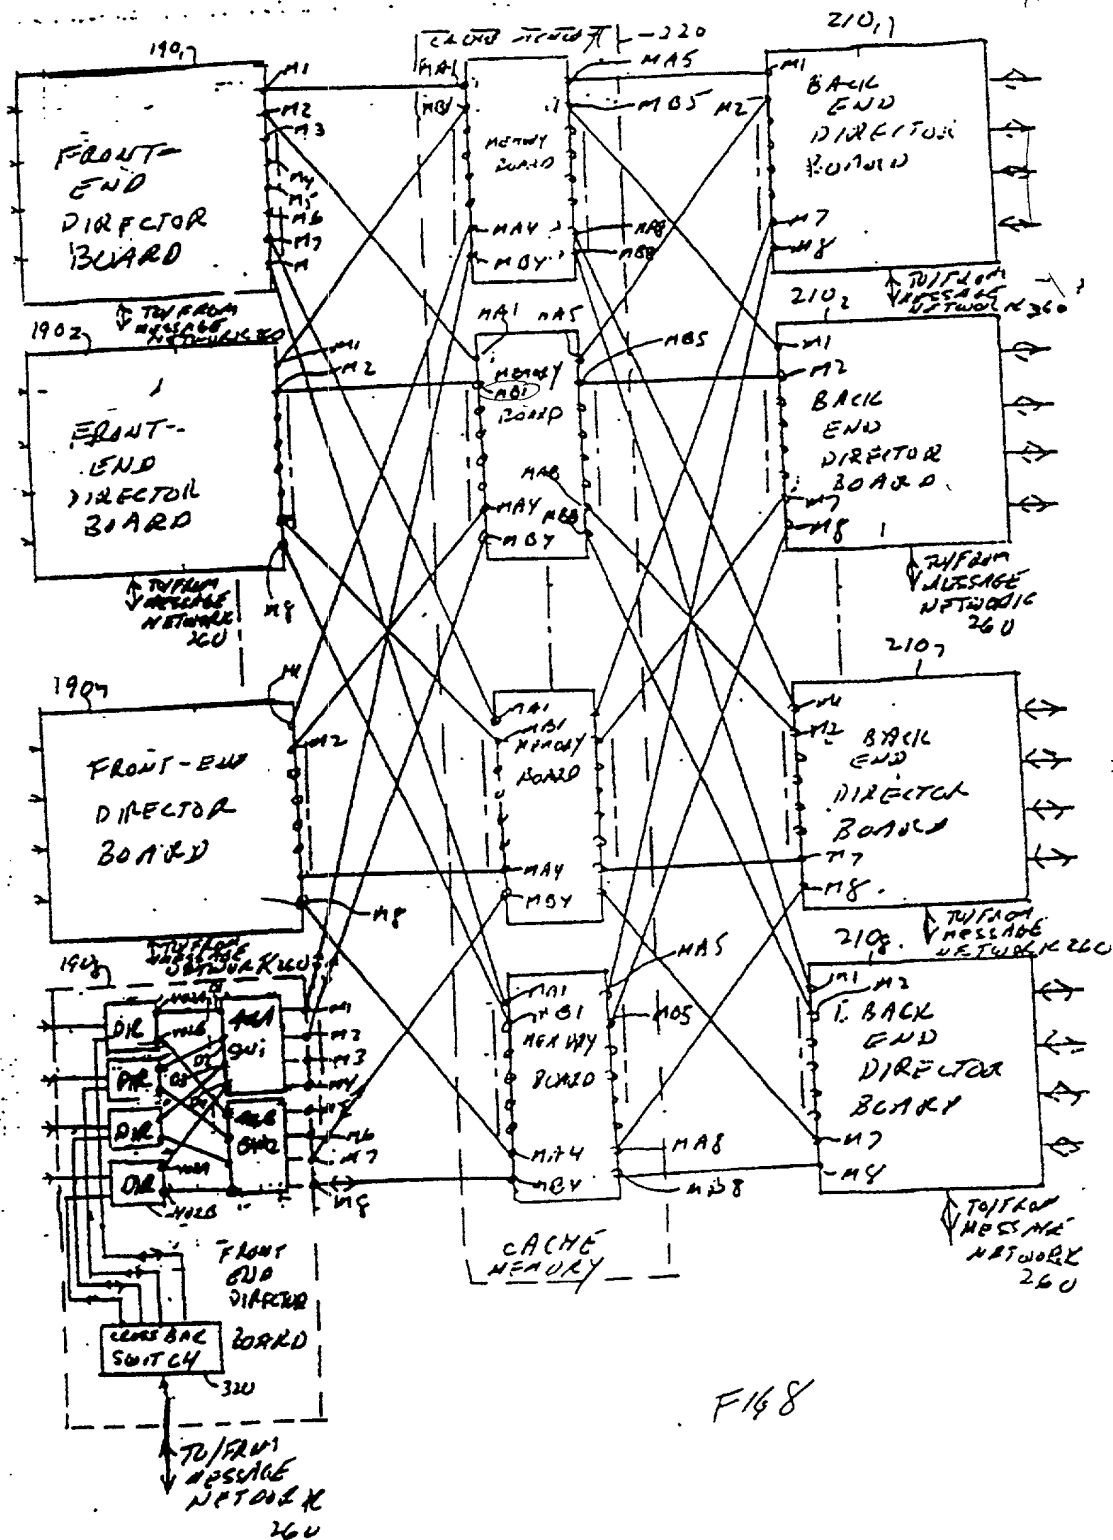 190₁
FRONT-
END
DIRECTOR
BOARD
M1
M2
M3
M4
M5
M6
M7
M
TO/FROM
MESSAGE
NETWORK 260
CACHE MEMORY
220
MA1
MB1
MEMORY
BOARD
MA4
MB4
MA5
MB5
MA8
MB8
210₁
M1
M2
BACK
END
DIRECTOR
BOARD
M7
M8
TO/FROM
MESSAGE
NETWORK 260
190₂
FRONT-
END
DIRECTOR
BOARD
M1
M2
M8
TO/FROM
MESSAGE
NETWORK
260
MA1
MA5
MB5
MEMORY
MB1
BOARD
MA8
MB8
MA4
MB4
210₂
M1
M2
BACK
END
DIRECTOR
BOARD
M7
M8
TO/FROM
MESSAGE
NETWORK
260
190₇
M1
M2
FRONT-END
DIRECTOR
BOARD
M8
TO/FROM
MESSAGE
NETWORK 260
MA1
MB1
MEMORY
BOARD
MA4
MB4
210₇
M1
M2
BACK
END
DIRECTOR
BOARD
M7
M8
TO/FROM
MESSAGE
NETWORK 260
190₈
DIR
DIR
DIR
DIR
402B
M1
M2
M3
M4
M6
M7
M8
FRONT
END
DIRECTOR
BOARD
CROSS BAR
SWITCH
320
TO/FROM
MESSAGE
NETWORK
260
MA1
MB1
MEMORY
BOARD
MA4
MB4
MA5
MB5
MA8
MB8
CACHE
MEMORY
210₈
M1
M2
BACK
END
DIRECTOR
BOARD
M7
M8
TO/FROM
MESSAGE
NETWORK
260
FIG 8